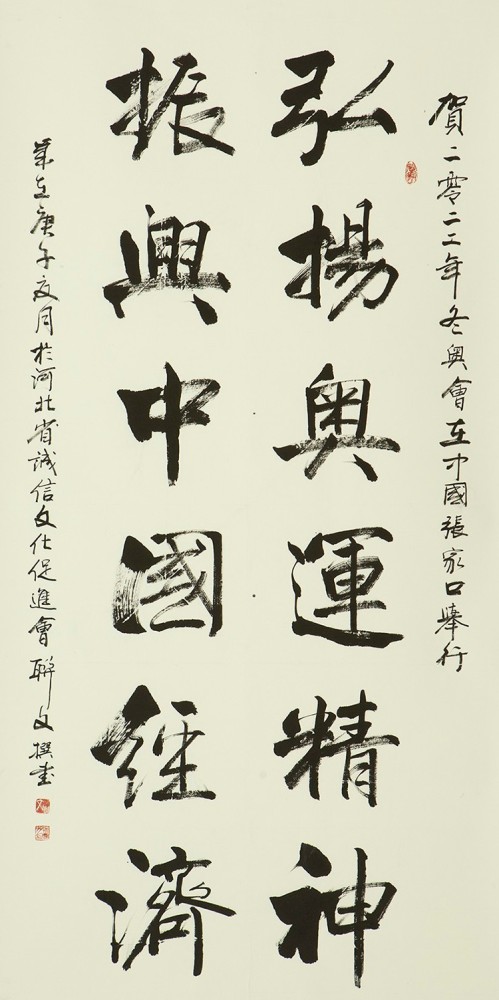 賀二零二二年冬奥會在中國張家口舉行
弘揚奥運精神
振興中國經濟
歲在庚子夏月於河北省誠信文化促進會聯文撰書